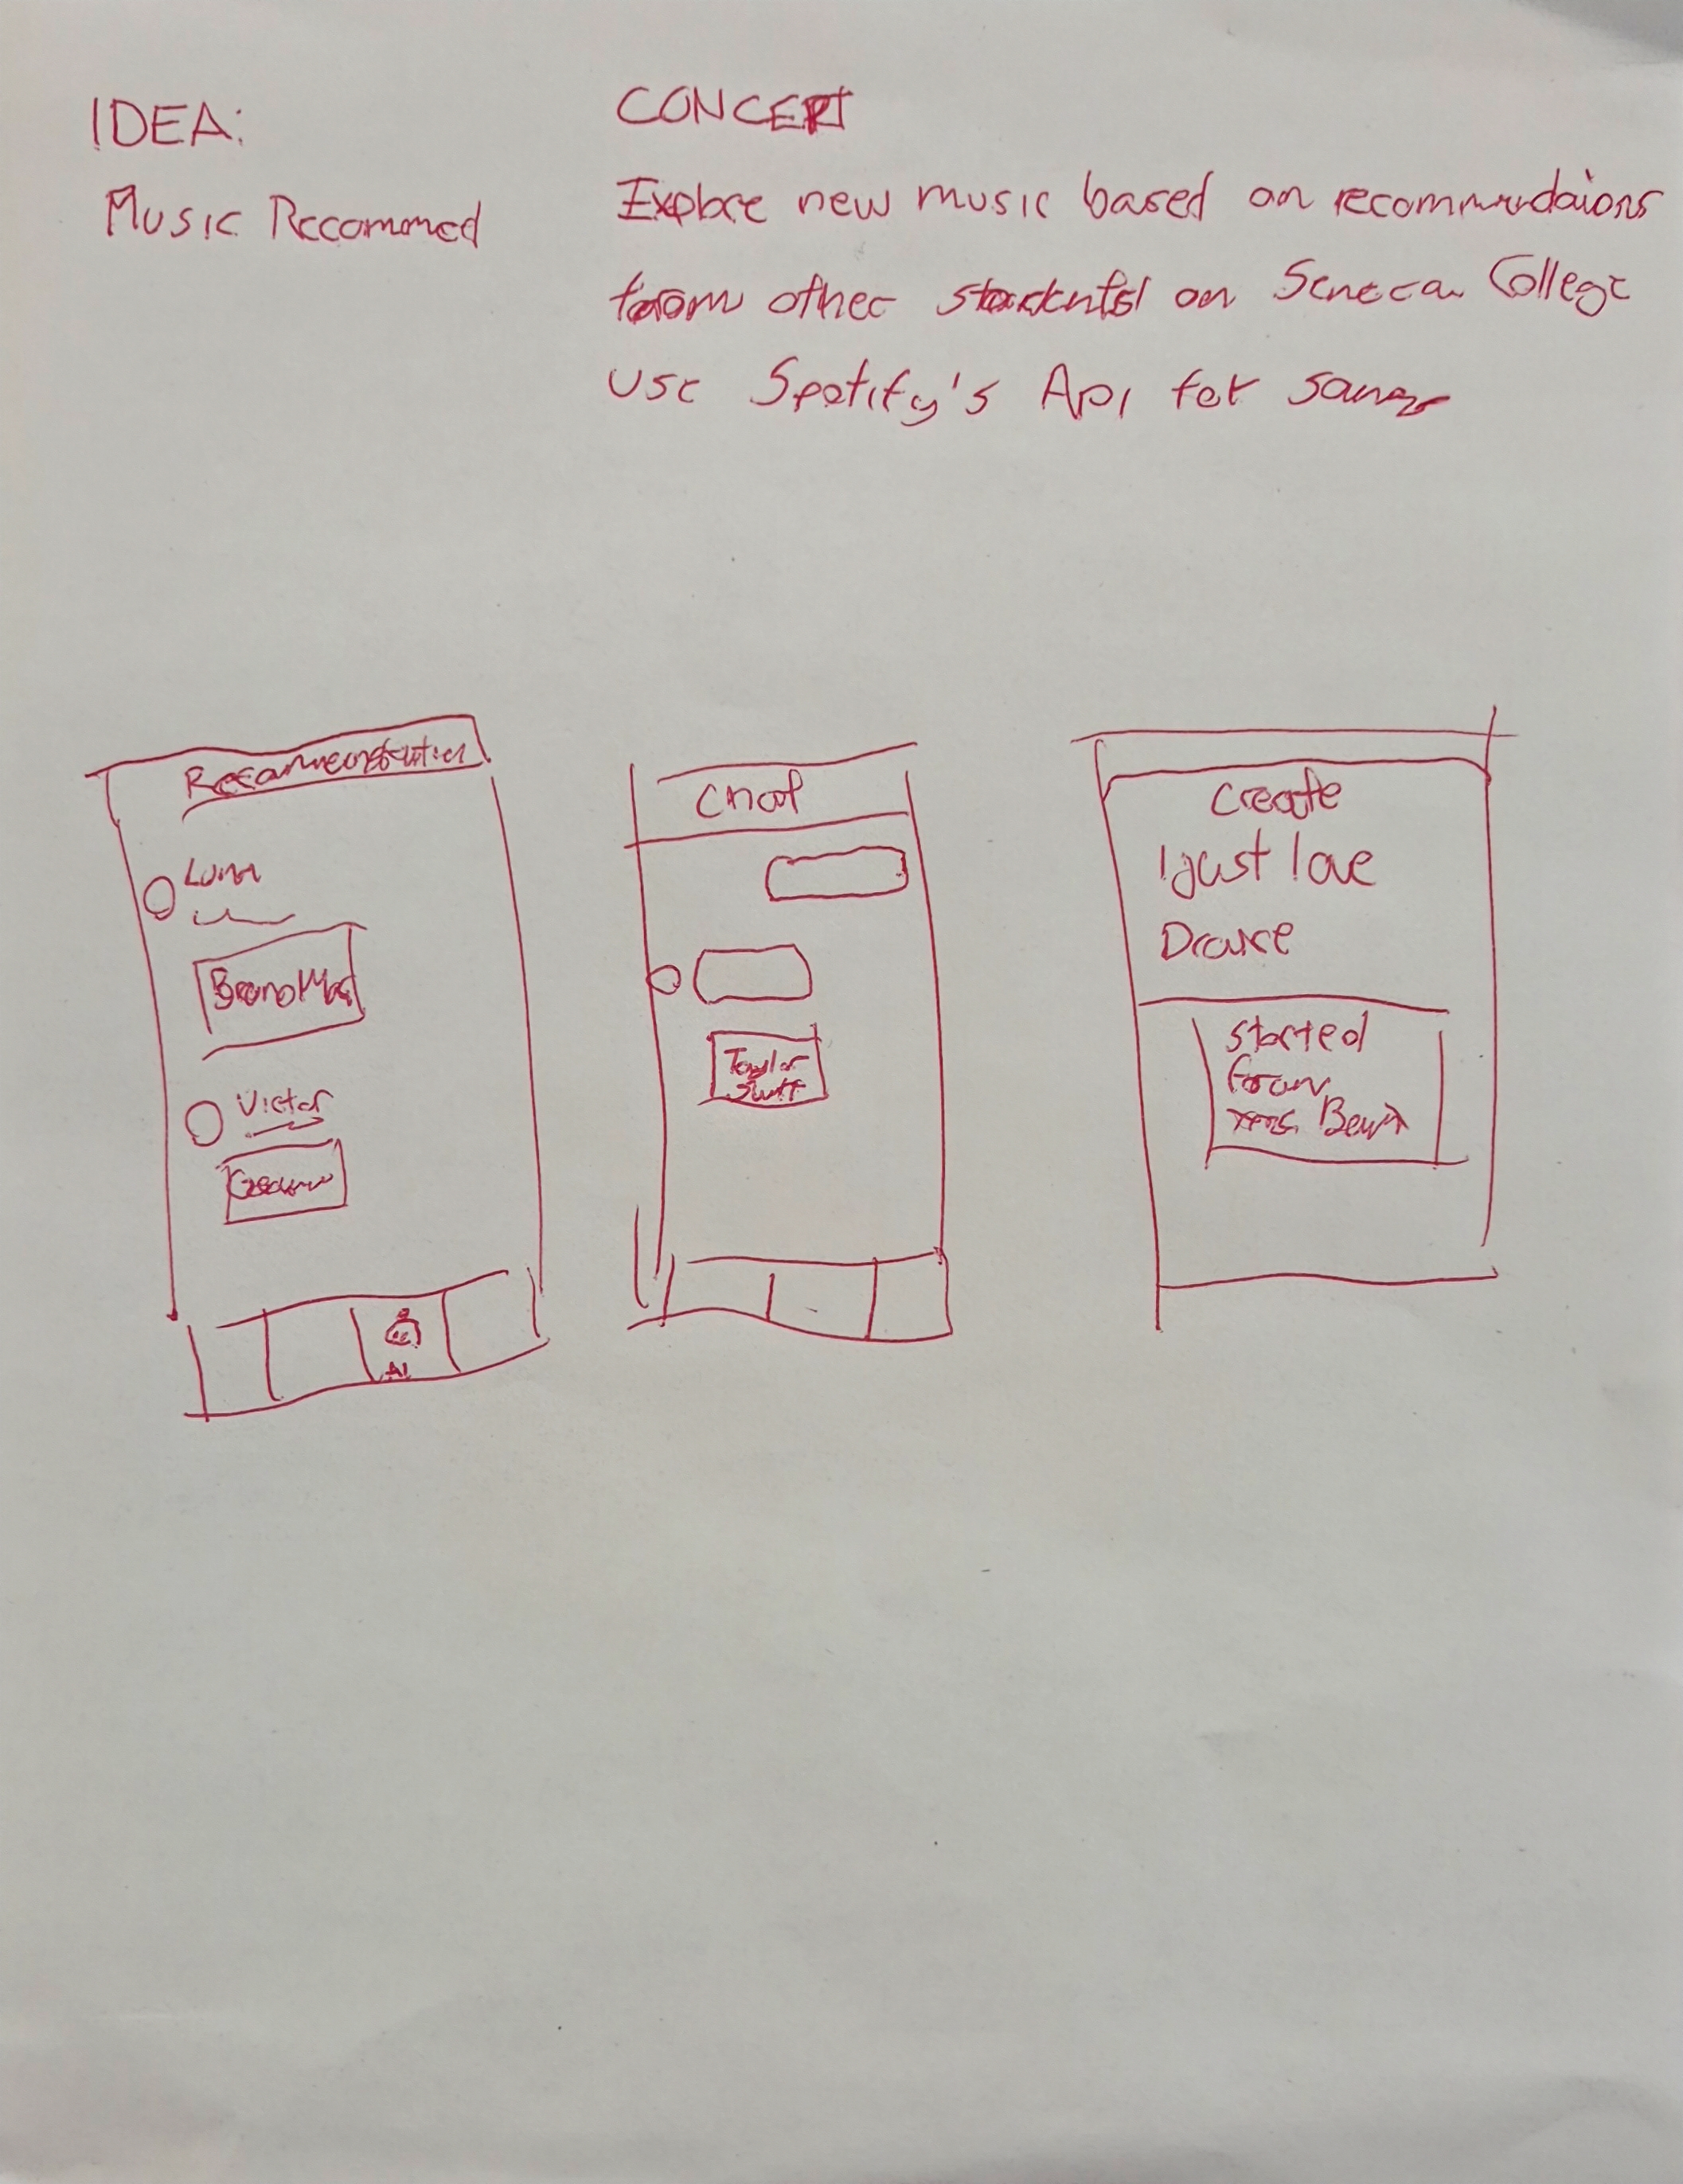 IDEA:
Music Recommed
CONCEPT
Explore new music based on recommendaions
from other students on Seneca College
use Spotify's Api for
Recommendation
Luna
Bruno Mars
Victor
AI
Chat
Taylor
Swift
Create
I just love
Drake
Started
From